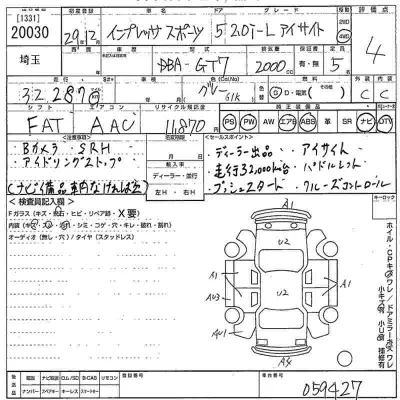 [1331]
20030
初度登録
ドア
グレード
評価点
29年12月
インプレッサ スポーツ
5
2.0i-L アイサイト
2WD
4WD
4
埼玉
車歴
型式
排気量
車検
定員
DBA-GT7
2000
cc
有・無
5
走行
色
燃料
外装
内装
32,287
グレー
61K
D・電・(その他)
C
C
シフト
エアコン
リサイクル預託金
純正装備品
FAT
AAC
11,870円
PS
PW
AW
エアB
ABS
革
SR
ナビ
TV
<注意事項>
<セールスポイント>
Bカメラ SRH
アイドリングストップ
ディーラー・並行
左H・右H
ディーラー出品
アイサイト
走行32,000km台
パドルシフト
プッシュスタート
クルーズコントロール
(ナビ備品車内なければ欠)
<検査員記入欄>
Fガラス(キズ・飛石・ヒビ・リペア跡・X要)
内装(キズ・スレ・汚れ・シミ・コゲ・穴・キレ・破れ・割れ)
オーディオ(無し・穴) / タイヤ(スタッドレス)
キーロック
A1
U2
A1
A1
AU3
U2
AU1
U2
A4
ホイル・CPキズワレ
ドアミラーキズワレ
小キズ有
小U有
補修有
下記欠品
取説
ナビ取説
ロム/SD
B-CAS
リモコン
ナンバー
スペアキー
キーレス
スマートキー
登録番号
車台番号
059427